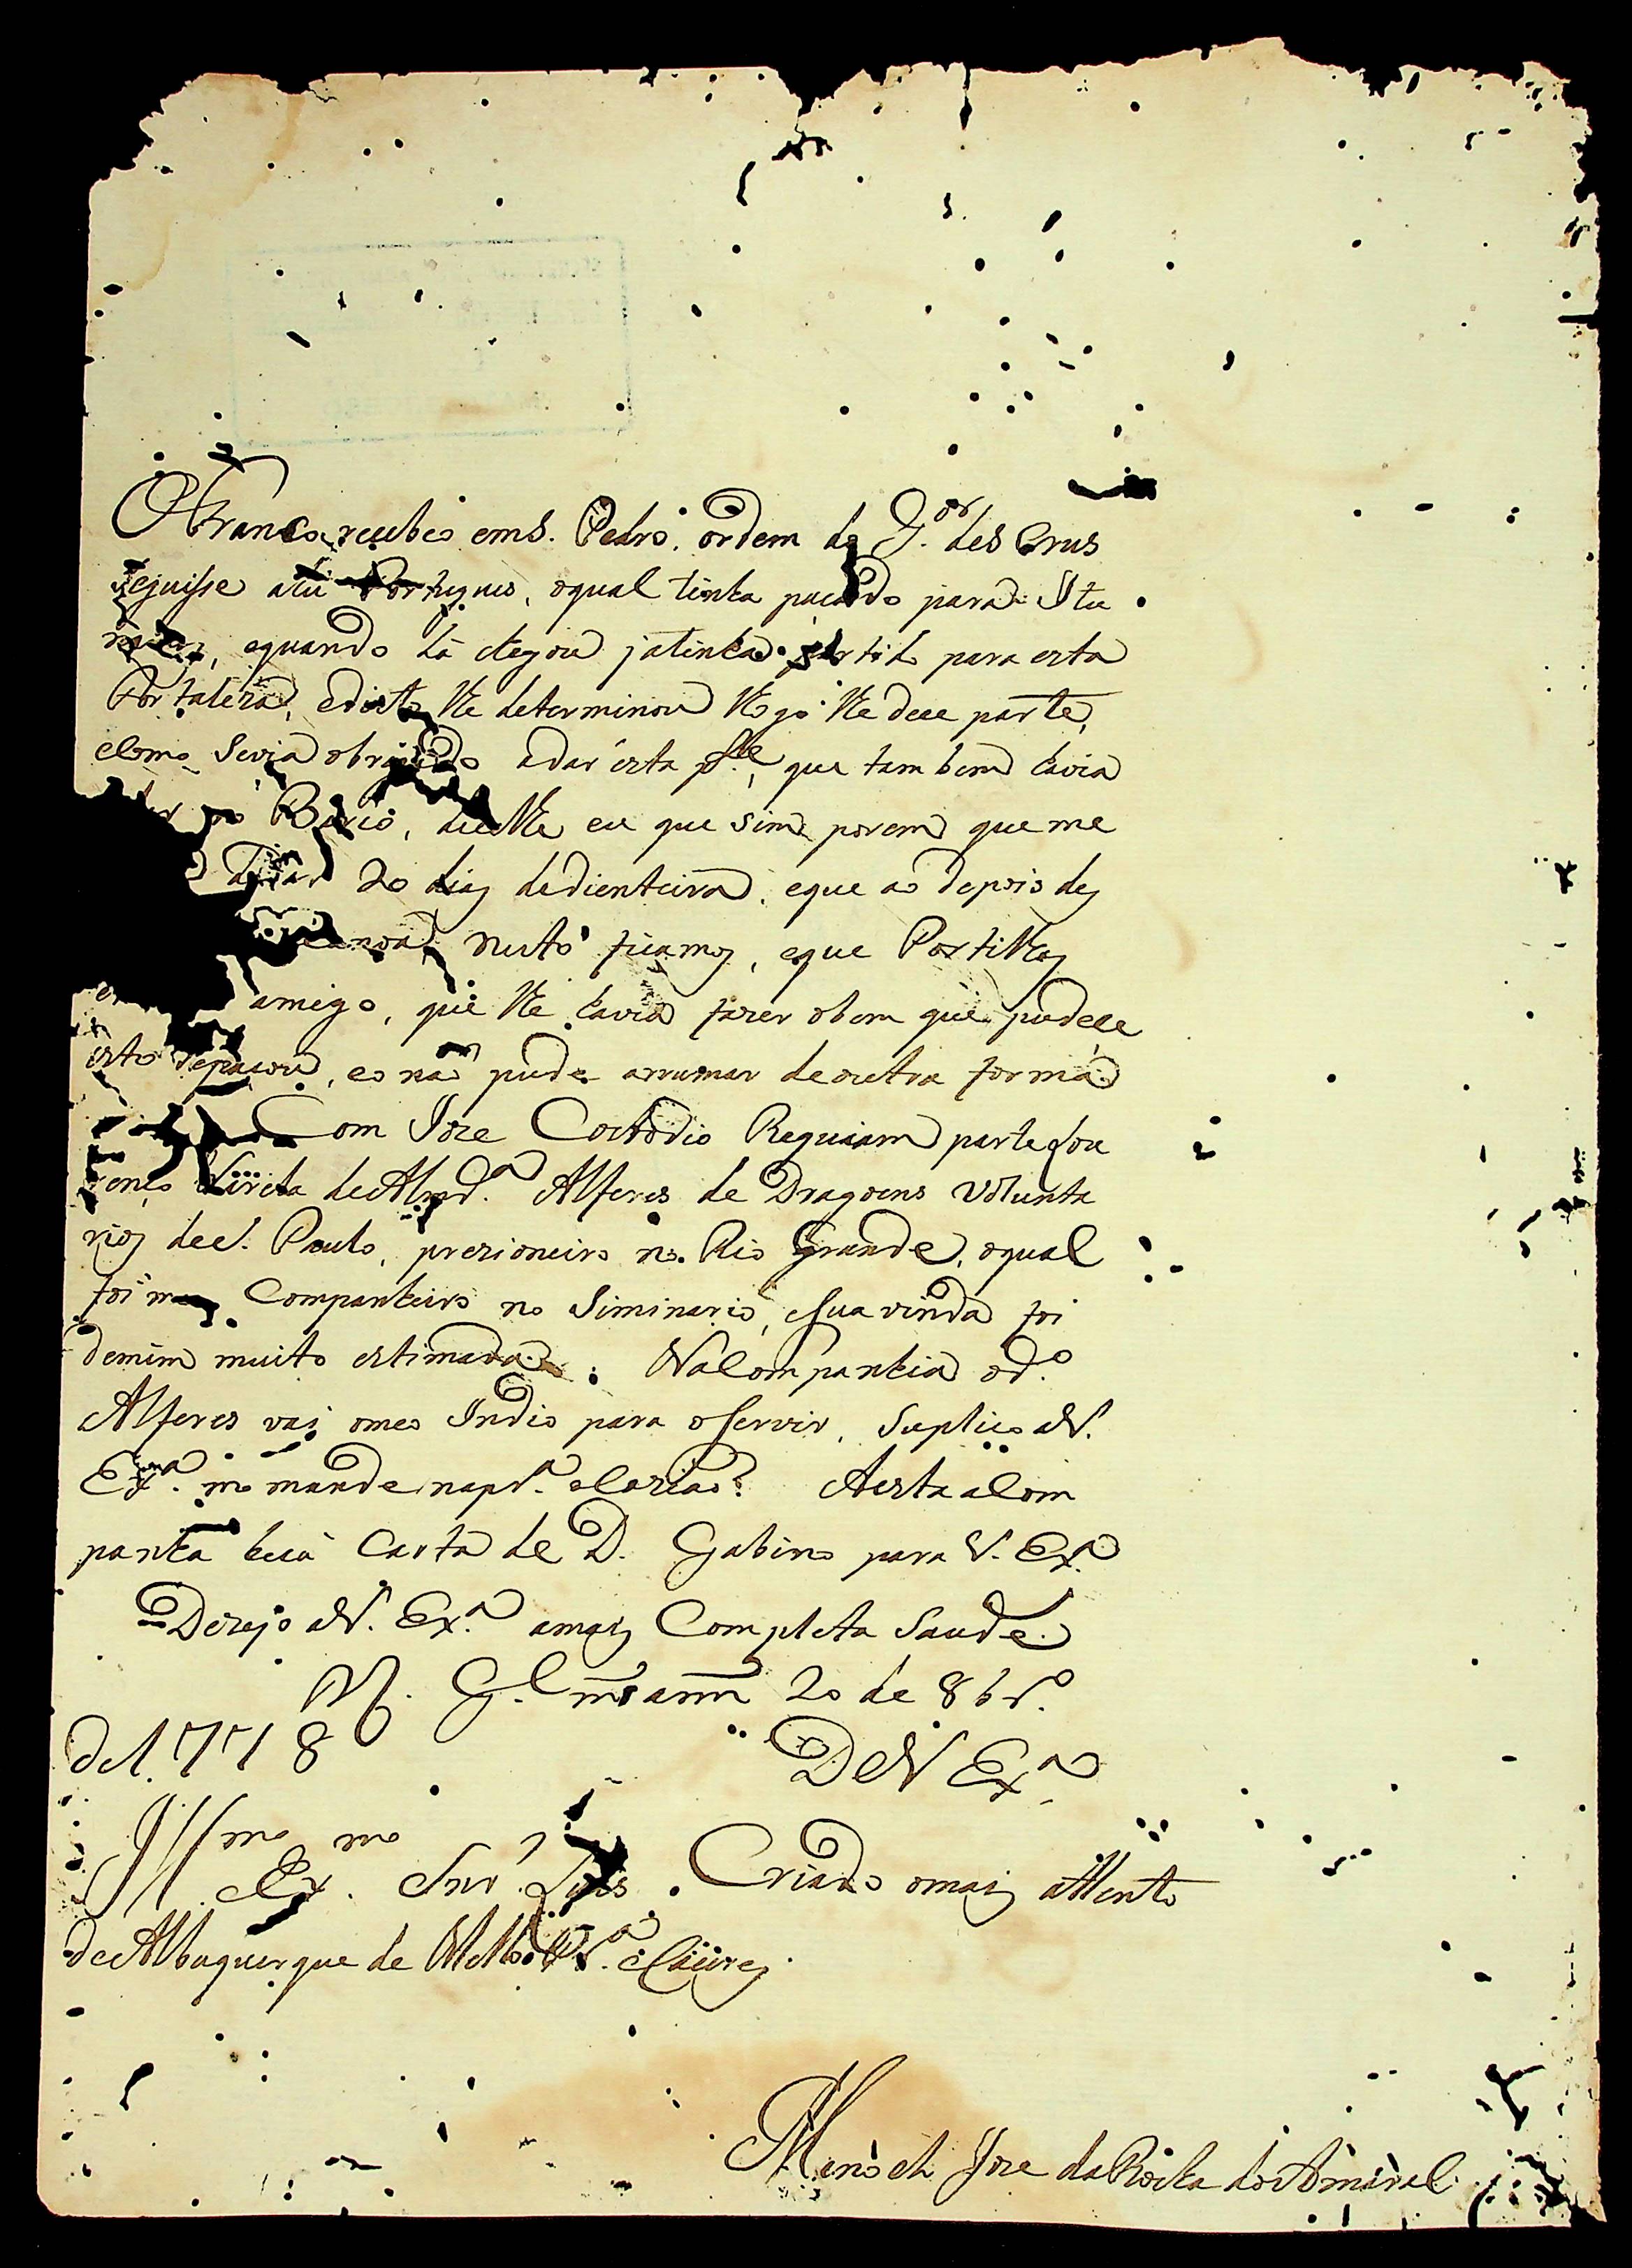 O Franco recebeo em S. Pedro ordem do G.or de S Crus
seguisse até Portugues, o qual tinha pacado para Itu
e quando lá chegou ja tinha partido para esta
Fortaleza, e disto lhe determinou logo lhe dece parte,
e como Seria obrigado a dar esta p.te, que tambem havia
Boscio, dicelhe eu que sim porem que me
20 dias de dienteira, e que ao depois des
nisto ficamos, e que Portilhas
amigo, que lhe havia fazer o bem que pudece
isto se pasou, e o não pude arrumar de outra forma
Com Joze Costodio Reguiam parte Lou
renço Uircha de Almd.a Alferes de Dragoens volunta
rios de S. Paulo, prezioneiro no Rio Grande, o qual
foi meo Companheiro no Siminario, e sua vinda foi
de mim muito estimada. Na Companhia o d.o
Alferes vai o meo Indio para o servir, Suplico a V.
Ex.a mo mande na pr.a ocazião. A esta acom
panha huá Carta de D. Gabino para V. Ex.a
Dezejo a V. Ex.a a mais Completa Saude.
20 de 8br.o
de 1.778 De V Ex.a
Ill.mo Ex.mo Snr. Luis Criado o mais attento
de Albuquerque de Mello Pr.a e Caceres
Manoel Joze da Rocha do Amaral